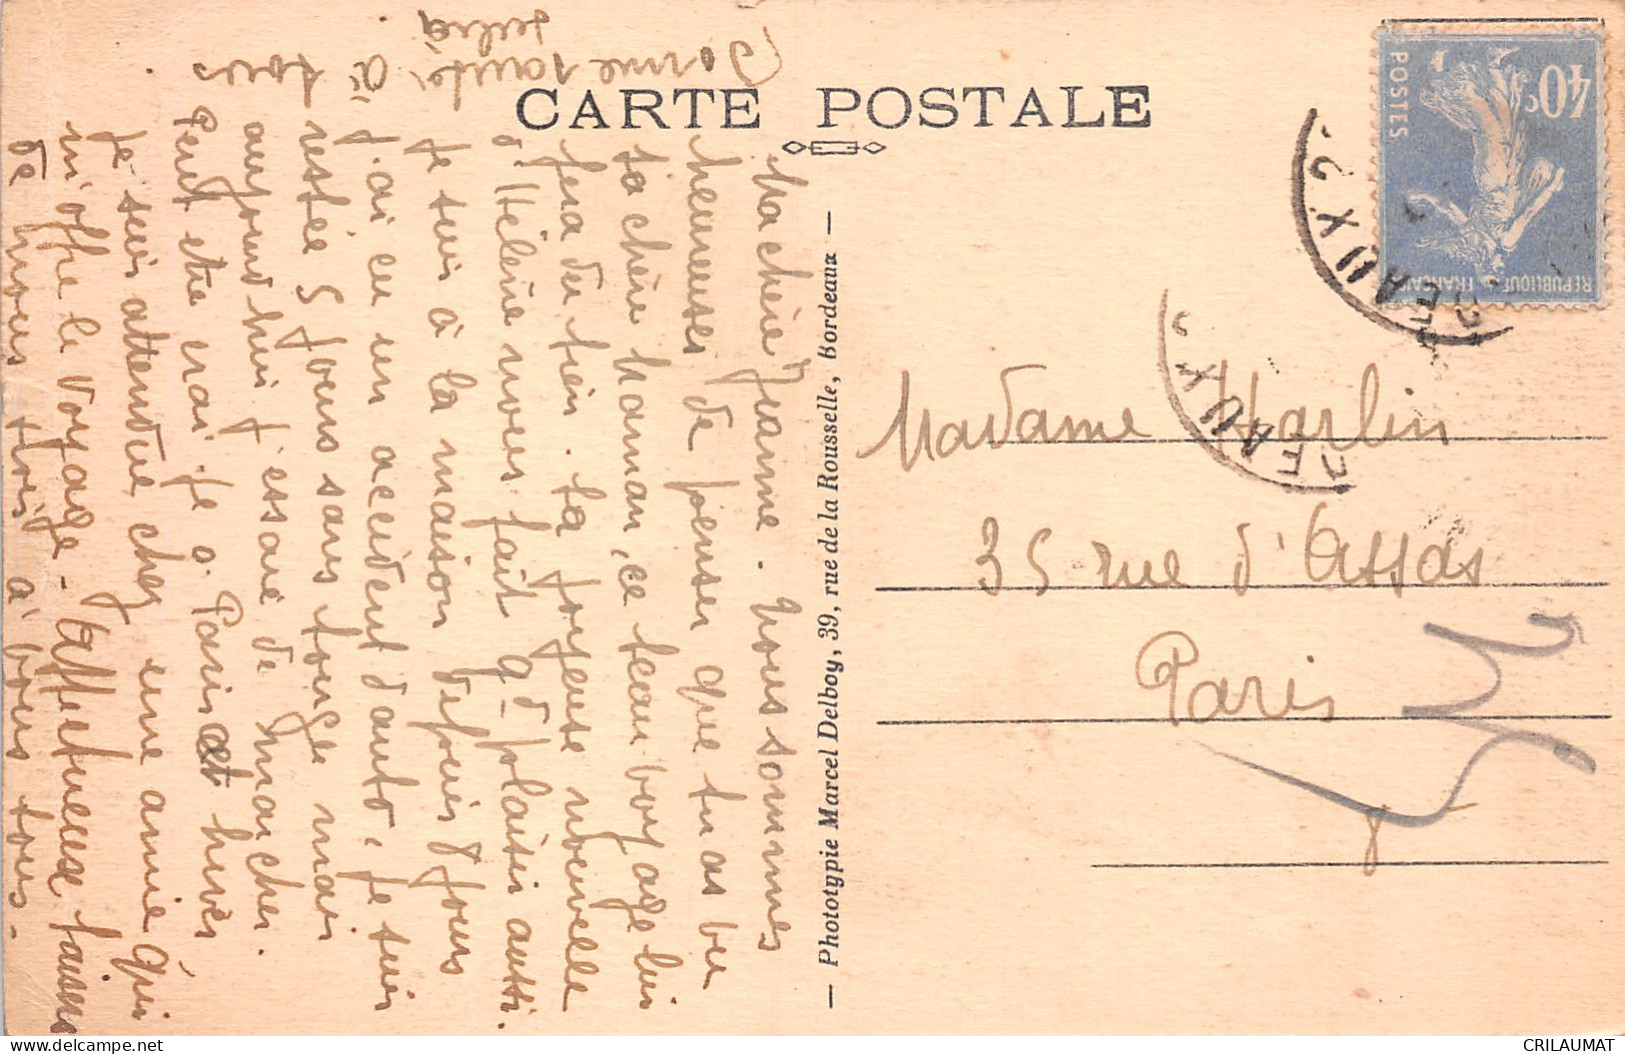 CARTE POSTALE
Ma chère Jeanne. Nous sommes
heureuses de penser que tu as vu
ta chère Maman, ce beau voyage lui
fera du bien. La joyeuse nouvelle
d'Hélène nous fait gd plaisir aussi.
Je suis à la maison depuis 8 jours
j'ai eu un accident d'auto, je suis
restée 5 jours sans bouger mais
aujourd'hui j'essaie de marcher.
Peut être irai je à Paris cet hiver
je suis attendue chez une amie qui
m'offre le voyage - Affectueux baisers
de nous trois à vous tous -
Bonne santé à tous
— Phototypie Marcel Delboy, 39, rue de la Rousselle, Bordeaux —
POSTES
40c
REPUBLIQUE FRANÇAISE
Madame Harlin
35 rue d'Assas
Paris
EAUX
EAUX
CRILAUMAT